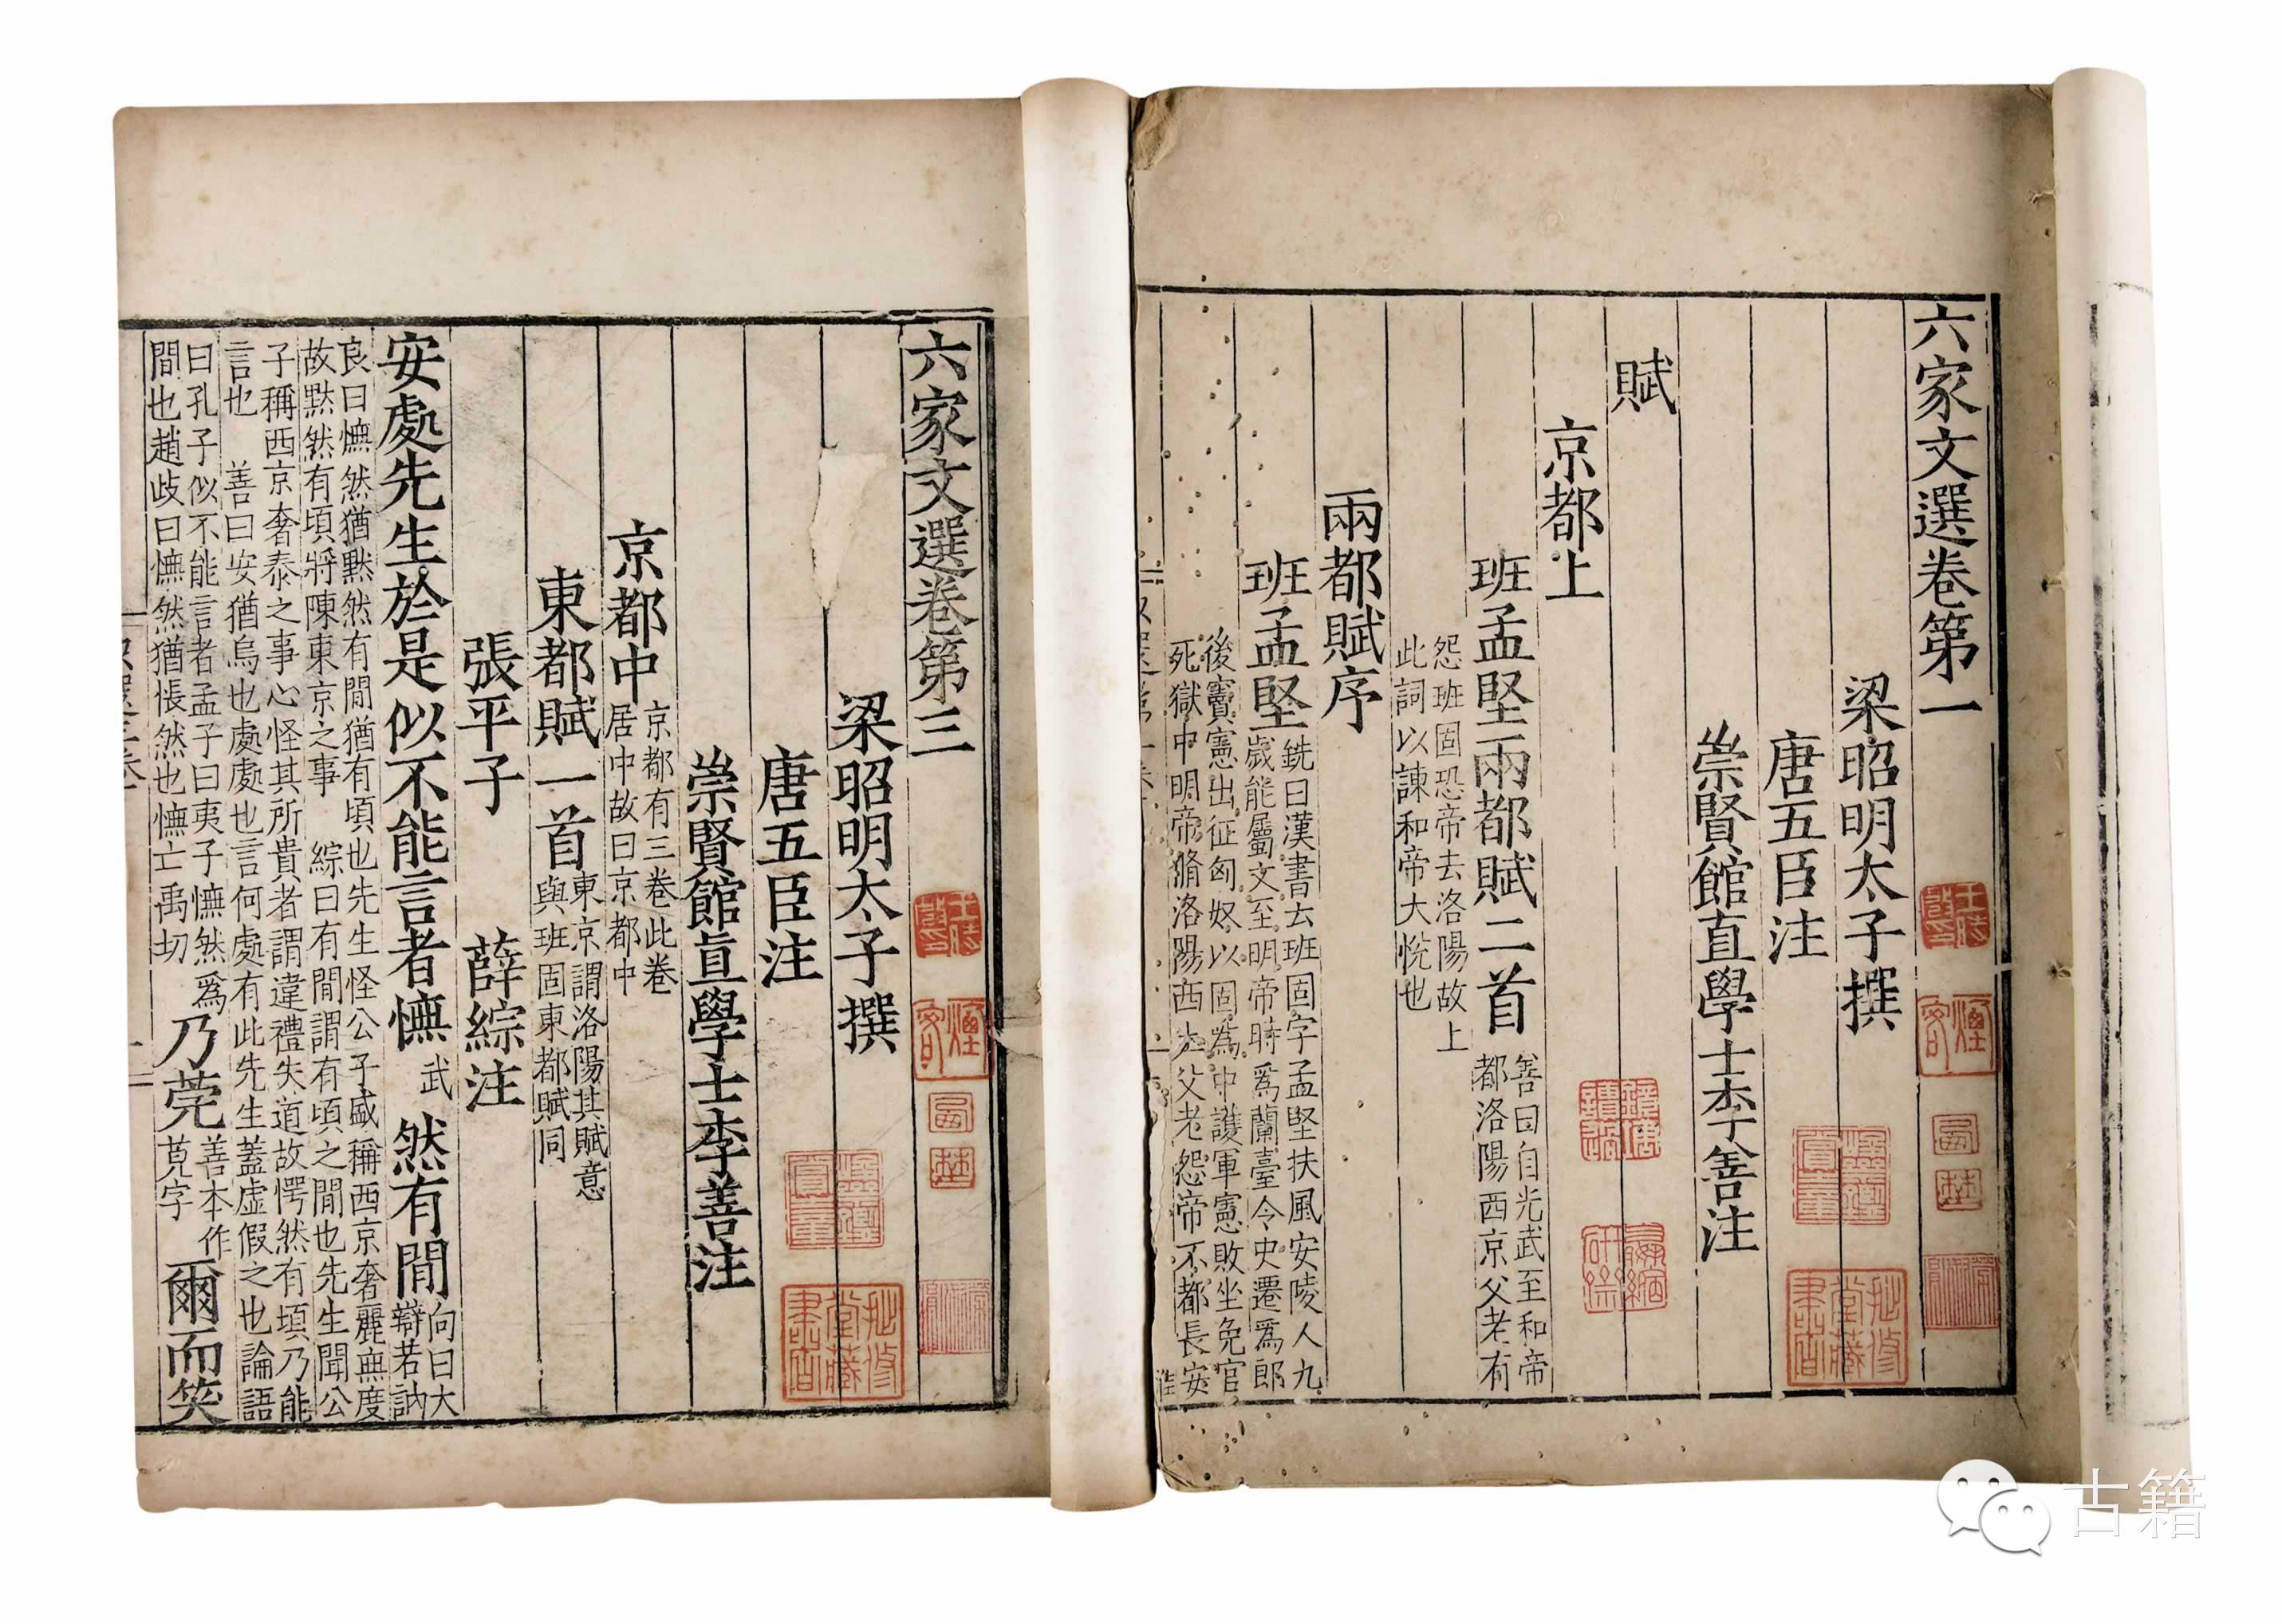 六家文選卷第一
梁昭明太子撰
唐五臣注
崇賢館直學士李善注
賦
京都上
班孟堅兩都賦二首
善曰自光武至和帝
都洛陽西京父老有
怨班固恐帝去洛陽故上
此詞以諫和帝大悅也
兩都賦序
班孟堅
銑曰漢書云班固字孟堅扶風安陵人九
歲能屬文至明帝時為蘭臺令史遷為郎
後竇憲出征匈奴以固為中護軍憲敗坐免官
死獄中明帝脩洛陽西土父老怨帝不都長安
六家文選卷第三
梁昭明太子撰
唐五臣注
崇賢館直學士李善注
京都中
京都有三卷此卷
居中故曰京都中
東都賦一首
東京謂洛陽其賦意
與班固東都賦同
張平子
薛綜注
安處先生於是似不能言者憮
武
然有閒
向曰大
辯若訥
良曰憮然猶默然有閒猶有頃也先生怪公子盛稱西京奢麗無度
故默然有頃將陳東京之事 綜曰有閒謂有頃之閒也先生聞公
子稱西京奢泰之事心怪其所貴者謂違禮失道故愕然有頃乃能
言也 善曰安猶烏也處處也言何處有此先生蓋虛假之也論語
曰孔子似不能言者孟子曰夷子憮然為
間也趙歧曰憮然猶悵然也憮亡禹切
乃莞
善本作
莧字
爾而笑
古籍